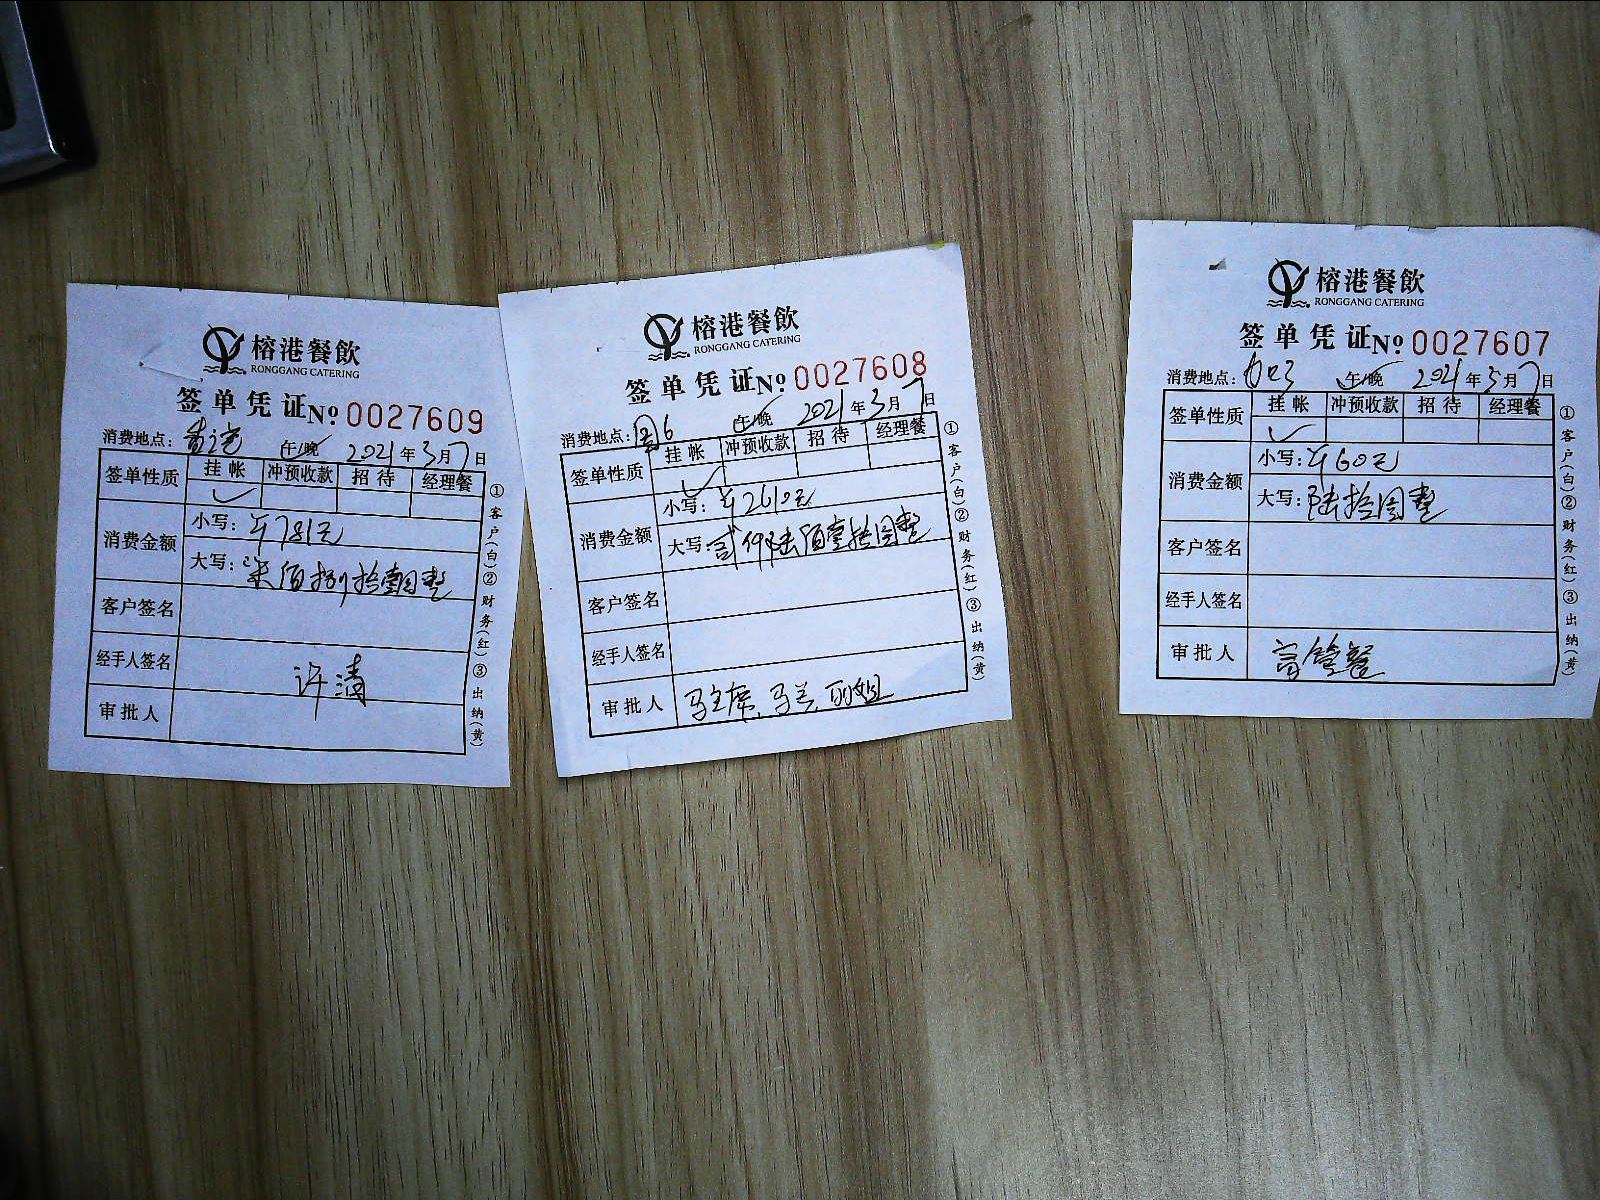 榕港餐飲
RONGGANG CATERING
签单凭证 № 0027609
消费地点： 午/晚 2021年3月7日
签单性质 挂帐 冲预收款 招待 经理餐
消费金额
小写：¥781元
大写：柒佰捌拾壹圆整
客户签名
经手人签名 许清
审批人
①客户(白)②财务(红)③出纳(黄)
榕港餐飲
RONGGANG CATERING
签单凭证 № 0027608
消费地点： 6 午/晚 2021年3月7日
签单性质 挂帐 冲预收款 招待 经理餐
消费金额
小写：¥2610元
大写：贰仟陆佰壹拾圆整
客户签名
经手人签名
审批人 马主席、马兰、丽姐
①客户(白)②财务(红)③出纳(黄)
榕港餐飲
RONGGANG CATERING
签单凭证 № 0027607
消费地点： 午/晚 2021年3月7日
签单性质 挂帐 冲预收款 招待 经理餐
消费金额
小写：¥60元
大写：陆拾圆整
客户签名
经手人签名
审批人 高管餐
①客户(白)②财务(红)③出纳(黄)